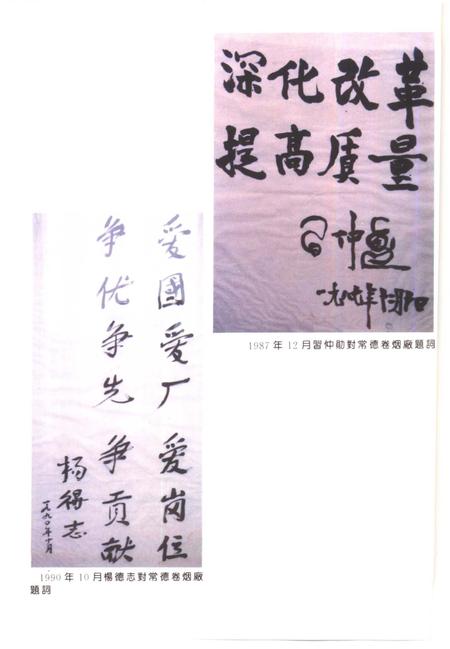 深化改革
提高质量
习仲勋
一九八七年十二月
1987年12月習仲勛對常德卷烟廠題詞
爱國爱厂爱岗位
争优争先争贡献
杨得志
一九九〇年十月
1990年10月楊德志對常德卷烟廠
題詞